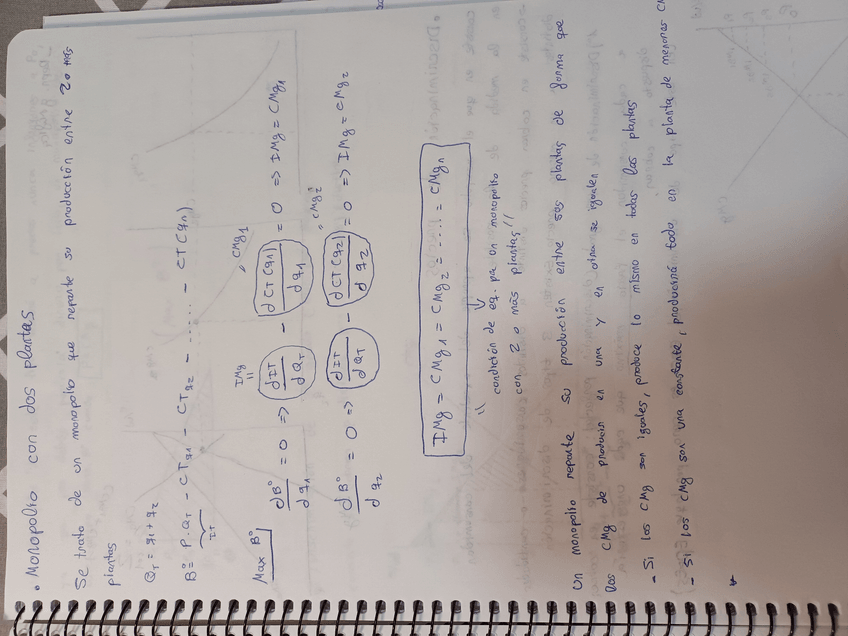 • Monopolio con dos plantas
Se trata de un monopolio que reparte su producción entre 2 o más
plantas
QT = q1 + q2
Bº = P · QT - CTq1 - CTq2 - ...... - CT(qn)
IT
Max Bº
IMg " CMg1
dBº/dq1 = 0 => dIT/dQT - dCT(q1)/dq1 = 0 => IMg = CMg1
" CMg2
dBº/dq2 = 0 => dIT/dQT - dCT(q2)/dq2 = 0 => IMg = CMg2
IMg = CMg1 = CMg2 = ..... = CMgn
" condición de eq. pa un monopolio
con 2 o más plantas "
Un monopolio reparte su producción entre sus plantas de forma que
los CMg de producir en una y en otra se igualen
- Si los CMg son iguales, produce lo mismo en todas las plantas
- Si los CMg son una constante, producirá todo en la planta de menores